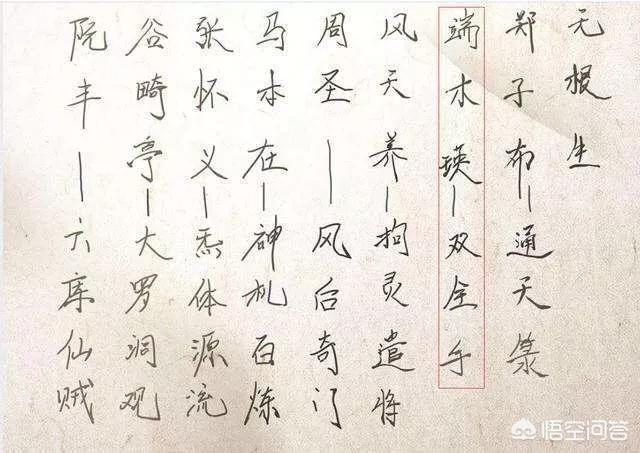 无根生
郑子布—通天箓
端木瑛—双全手
风天养—拘灵遣将
周圣—风后奇门
马本在—神机百炼
张怀义—炁体源流
谷畸亭—大罗洞观
阮丰—六库仙贼
悟空问答